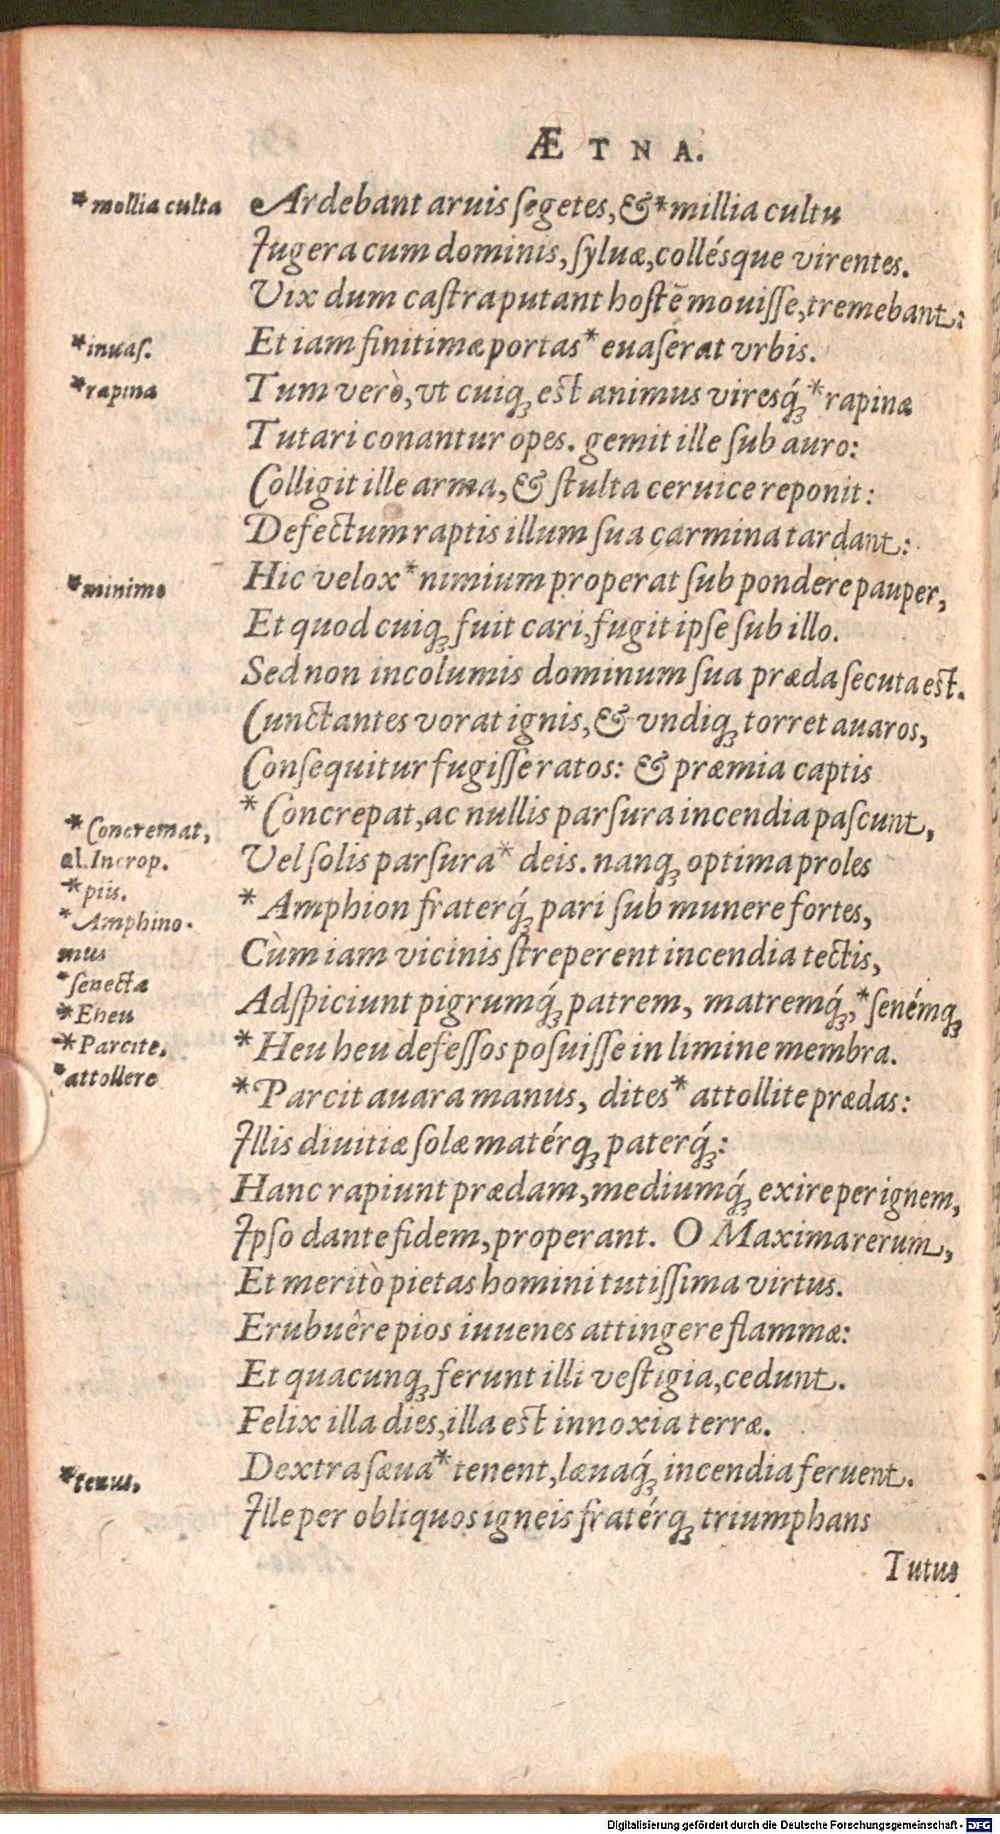 ÆTNA.
*mollia culta
Ardebant aruis ſegetes, &*millia cultu
Iugera cum dominis, ſyluæ, colléſque virentes.
Vix dum caſtra putant hoſtē mouiſſe, tremebant:
*inuaſ.
Et iam finitimæ portas* euaſerat vrbis.
*rapina
Tum verò, vt cuiqꝫ est animus viresqꝫ́ *rapinæ
Tutari conantur opes. gemit ille ſub auro:
Colligit ille arma, & ſtulta ceruice reponit:
Defectum raptis illum ſua carmina tardant:
*minimo
Hic velox* nimium properat ſub pondere pauper,
Et quod cuiqꝫ fuit cari, fugit ipſe ſub illo.
Sed non incolumis dominum ſua præda ſecuta est.
Cunctantes vorat ignis, & vndiqꝫ torret auaros,
Conſequitur fugiſſe ratos: & præmia captis
*Concremat,
al.Incrop.
*Concrepat, ac nullis parſura incendia paſcunt,
Vel ſolis parſura* deis. nanqꝫ optima proles
*piis.
*Amphino-
mus
*Amphion fraterqꝫ́ pari ſub munere fortes,
Cùm iam vicinis ſtreperent incendia tectis,
*ſenecta
Adſpiciunt pigrumqꝫ́ patrem, matremqꝫ́, *ſenémqꝫ
*Eheu
*Heu heu defeſſos poſuiſſe in limine membra.
*Parcite,
*attollere
*Parcit auara manus, dites* attollite prædas:
Illis diuitiæ ſolæ matérqꝫ paterqꝫ́:
Hanc rapiunt prædam, mediumqꝫ́ exire per ignem,
Ipſo dante fidem, properant. O Maxima rerum,
Et meritò pietas homini tutiſſima virtus.
Erubuêre pios iuuenes attingere flammæ:
Et quacunqꝫ ferunt illi veſtigia, cedunt.
Felix illa dies, illa est innoxia terræ.
*tenus,
Dextra ſæua* tenent, læuaqꝫ́ incendia feruent.
Ille per obliquos igneis fratérqꝫ triumphans
Tutus
Digitalisierung gefördert durch die Deutsche Forschungsgemeinschaft - DFG